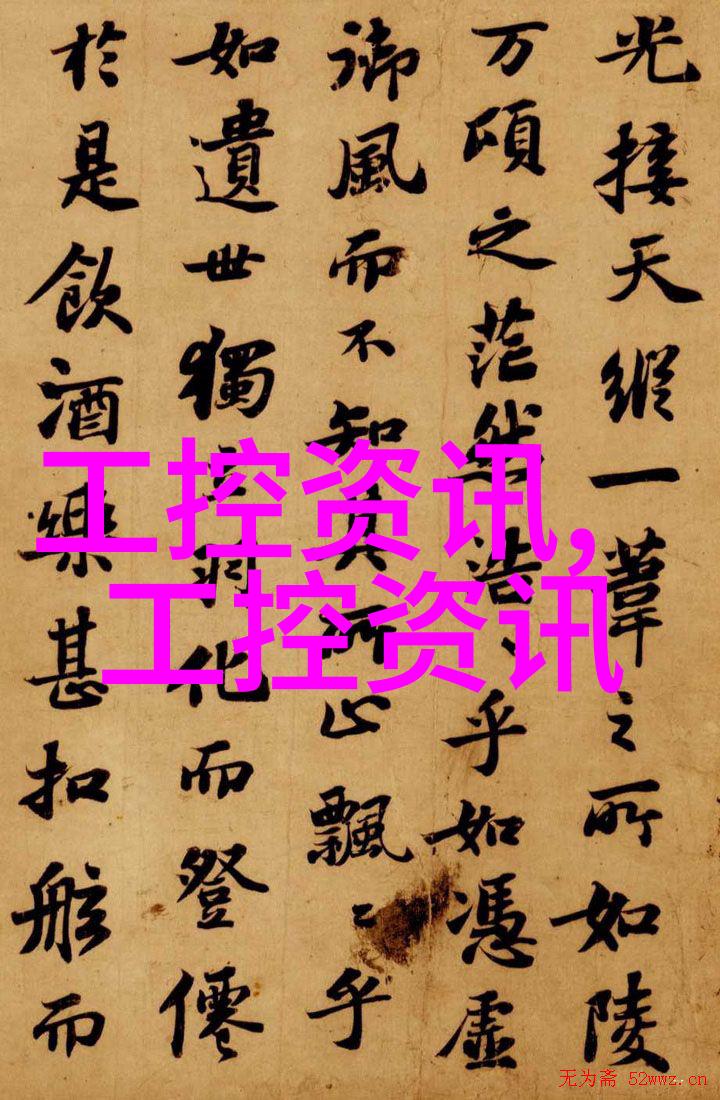 光接天縱一葦之所如陵
万頃之茫然浩〻乎如憑虛
御風而不知其所止飄〻乎
如遺世獨立羽化而登僊
於是飲酒樂甚扣舷而
工控资讯,
工控资讯
无为斋 52wwz.cn